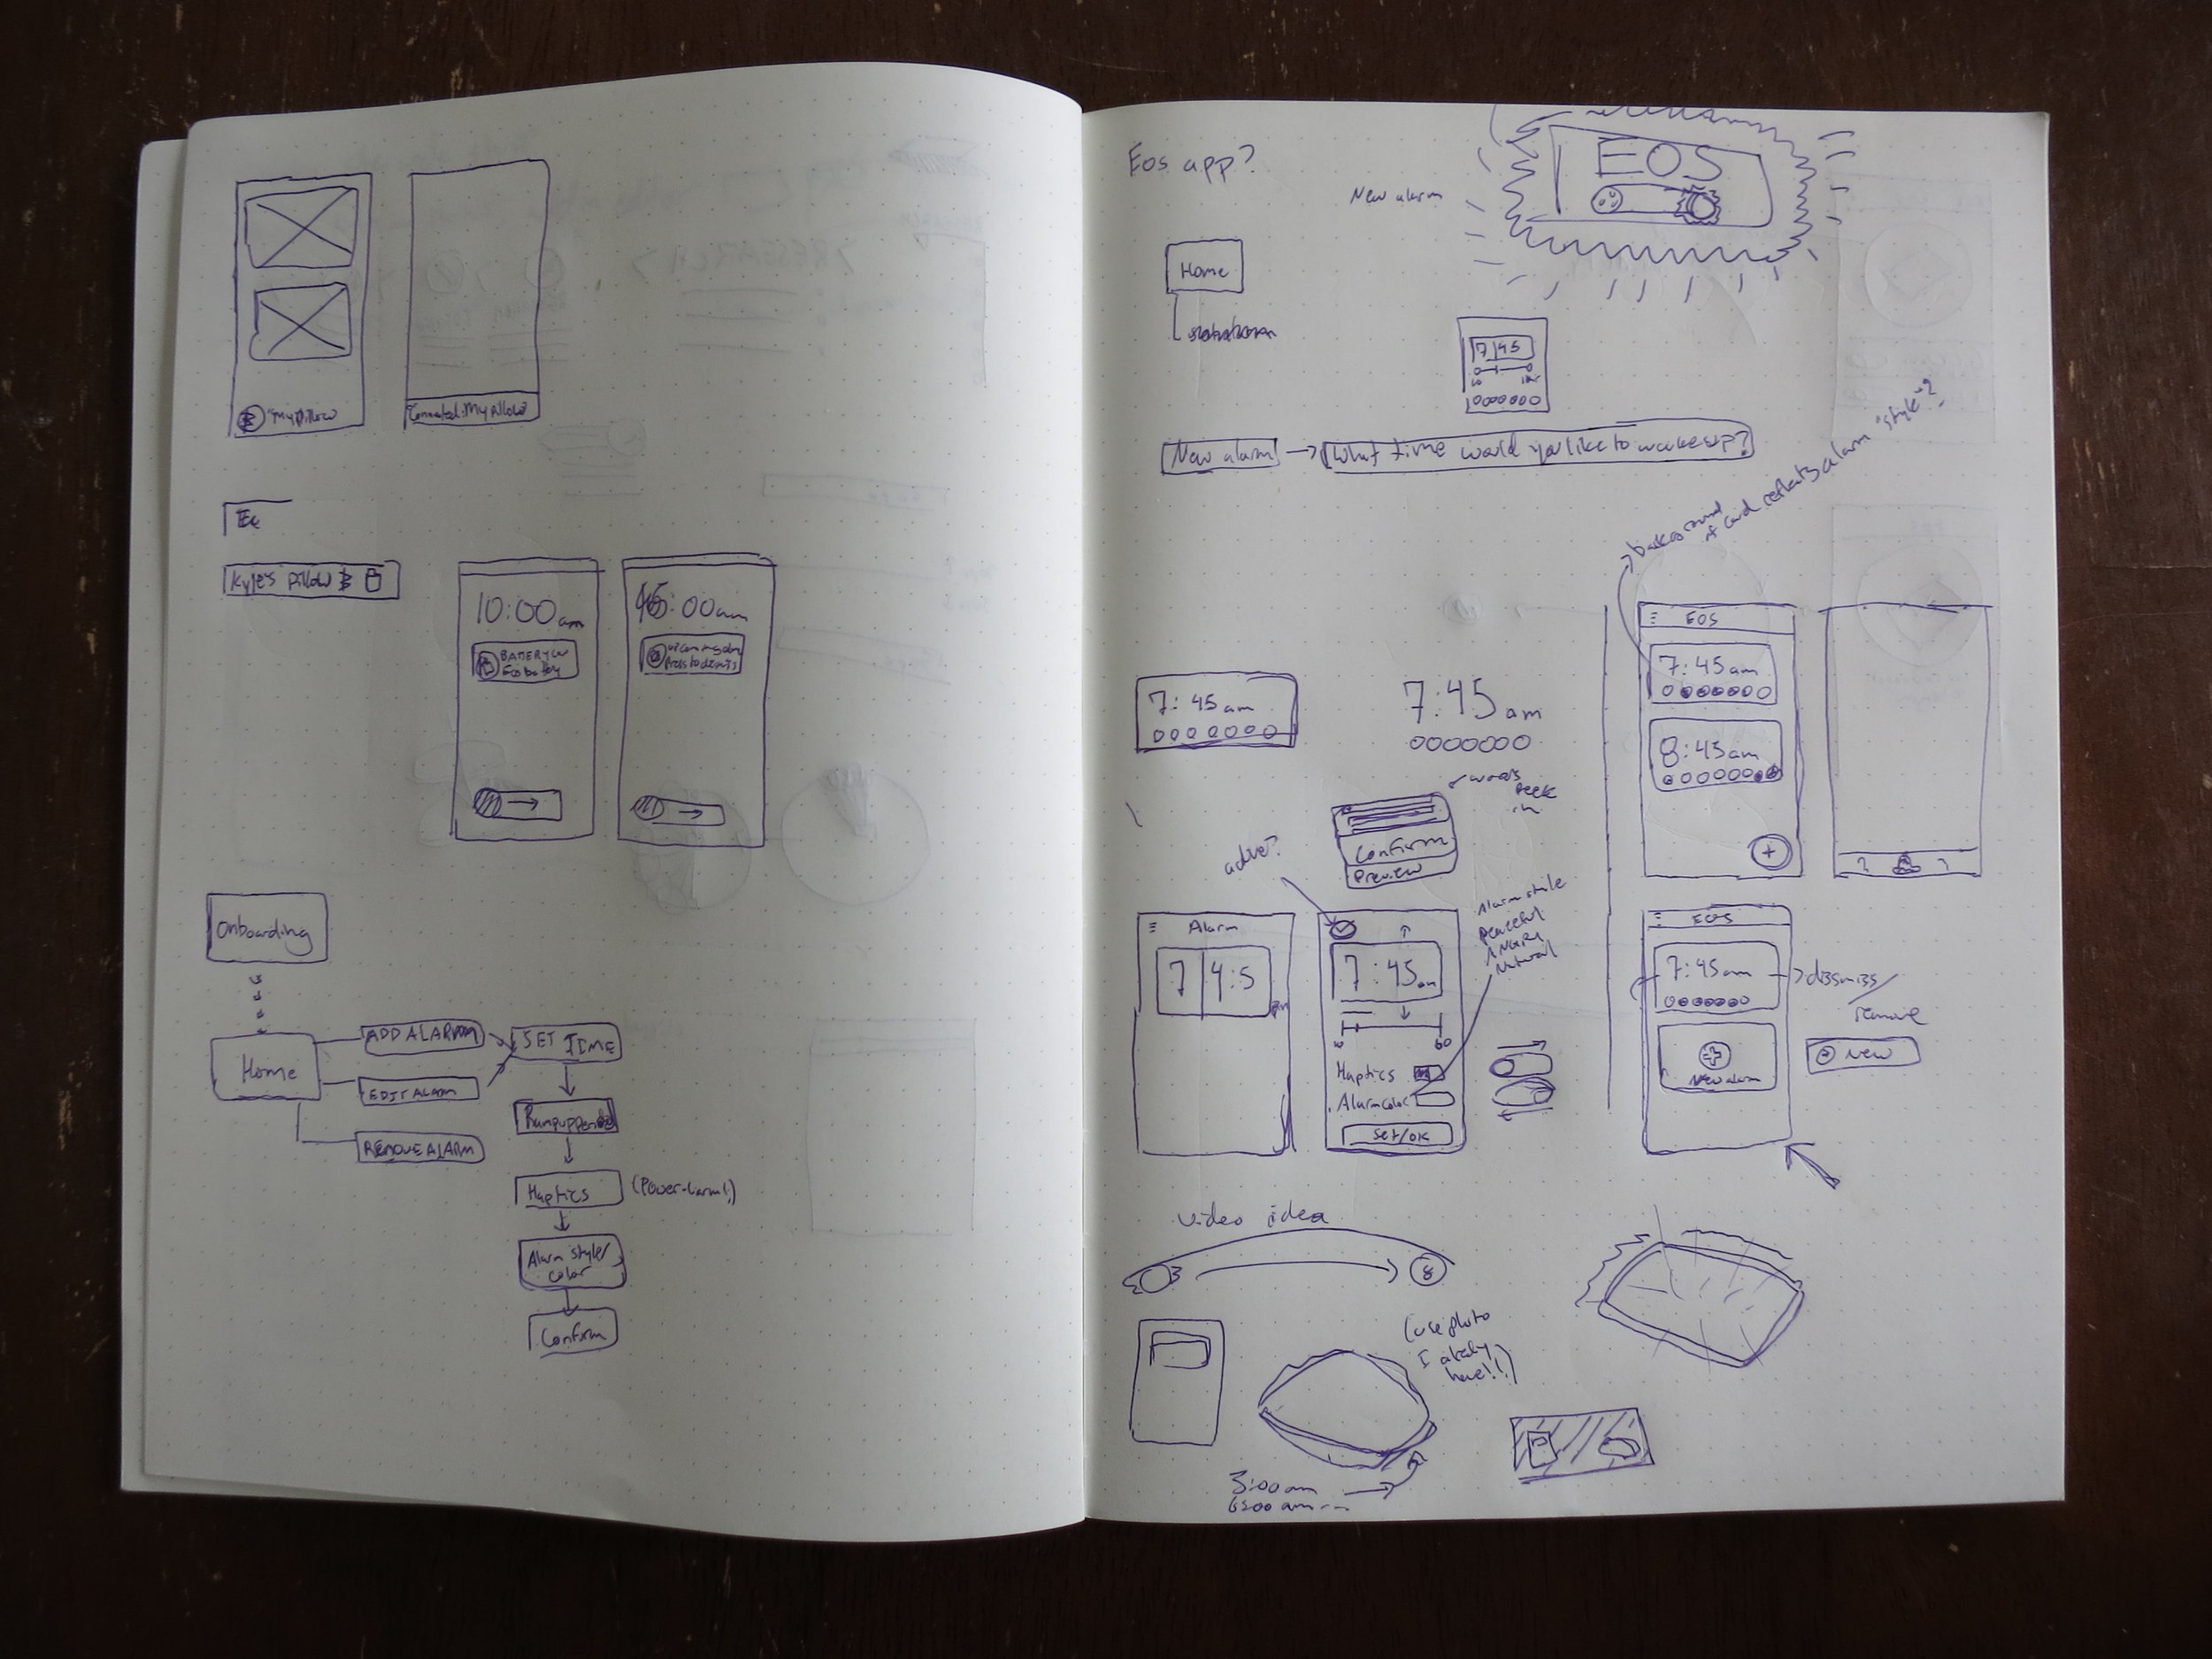 My Pillow
Connected: My Pillow
Kyle's Pillow
10:00am
BATTERY
:00am
Onboarding
Home
ADD ALARM
EDIT ALARM
REMOVE ALARM
SET TIME
Haptics
Alarm style/
color
Confirm
Eos app?
New alarm
EOS
Home
7 45
New alarm
What time would you like to wake up?
background
of card reflects alarm "style"?
7:45am
7:45am
EOS
7:45am
8:45am
+
words
peek
in
Confirm
Preview
active?
Alarm
7 4:5
7:45am
60
Haptics
Alarm color
Set/OK
Alarm style
Peaceful
Angry
Natural
EOS
7:45am
New alarm
dissmiss/
remove
New
Video idea
8
(use photo
I already
have!!)
3:00am
6:00am